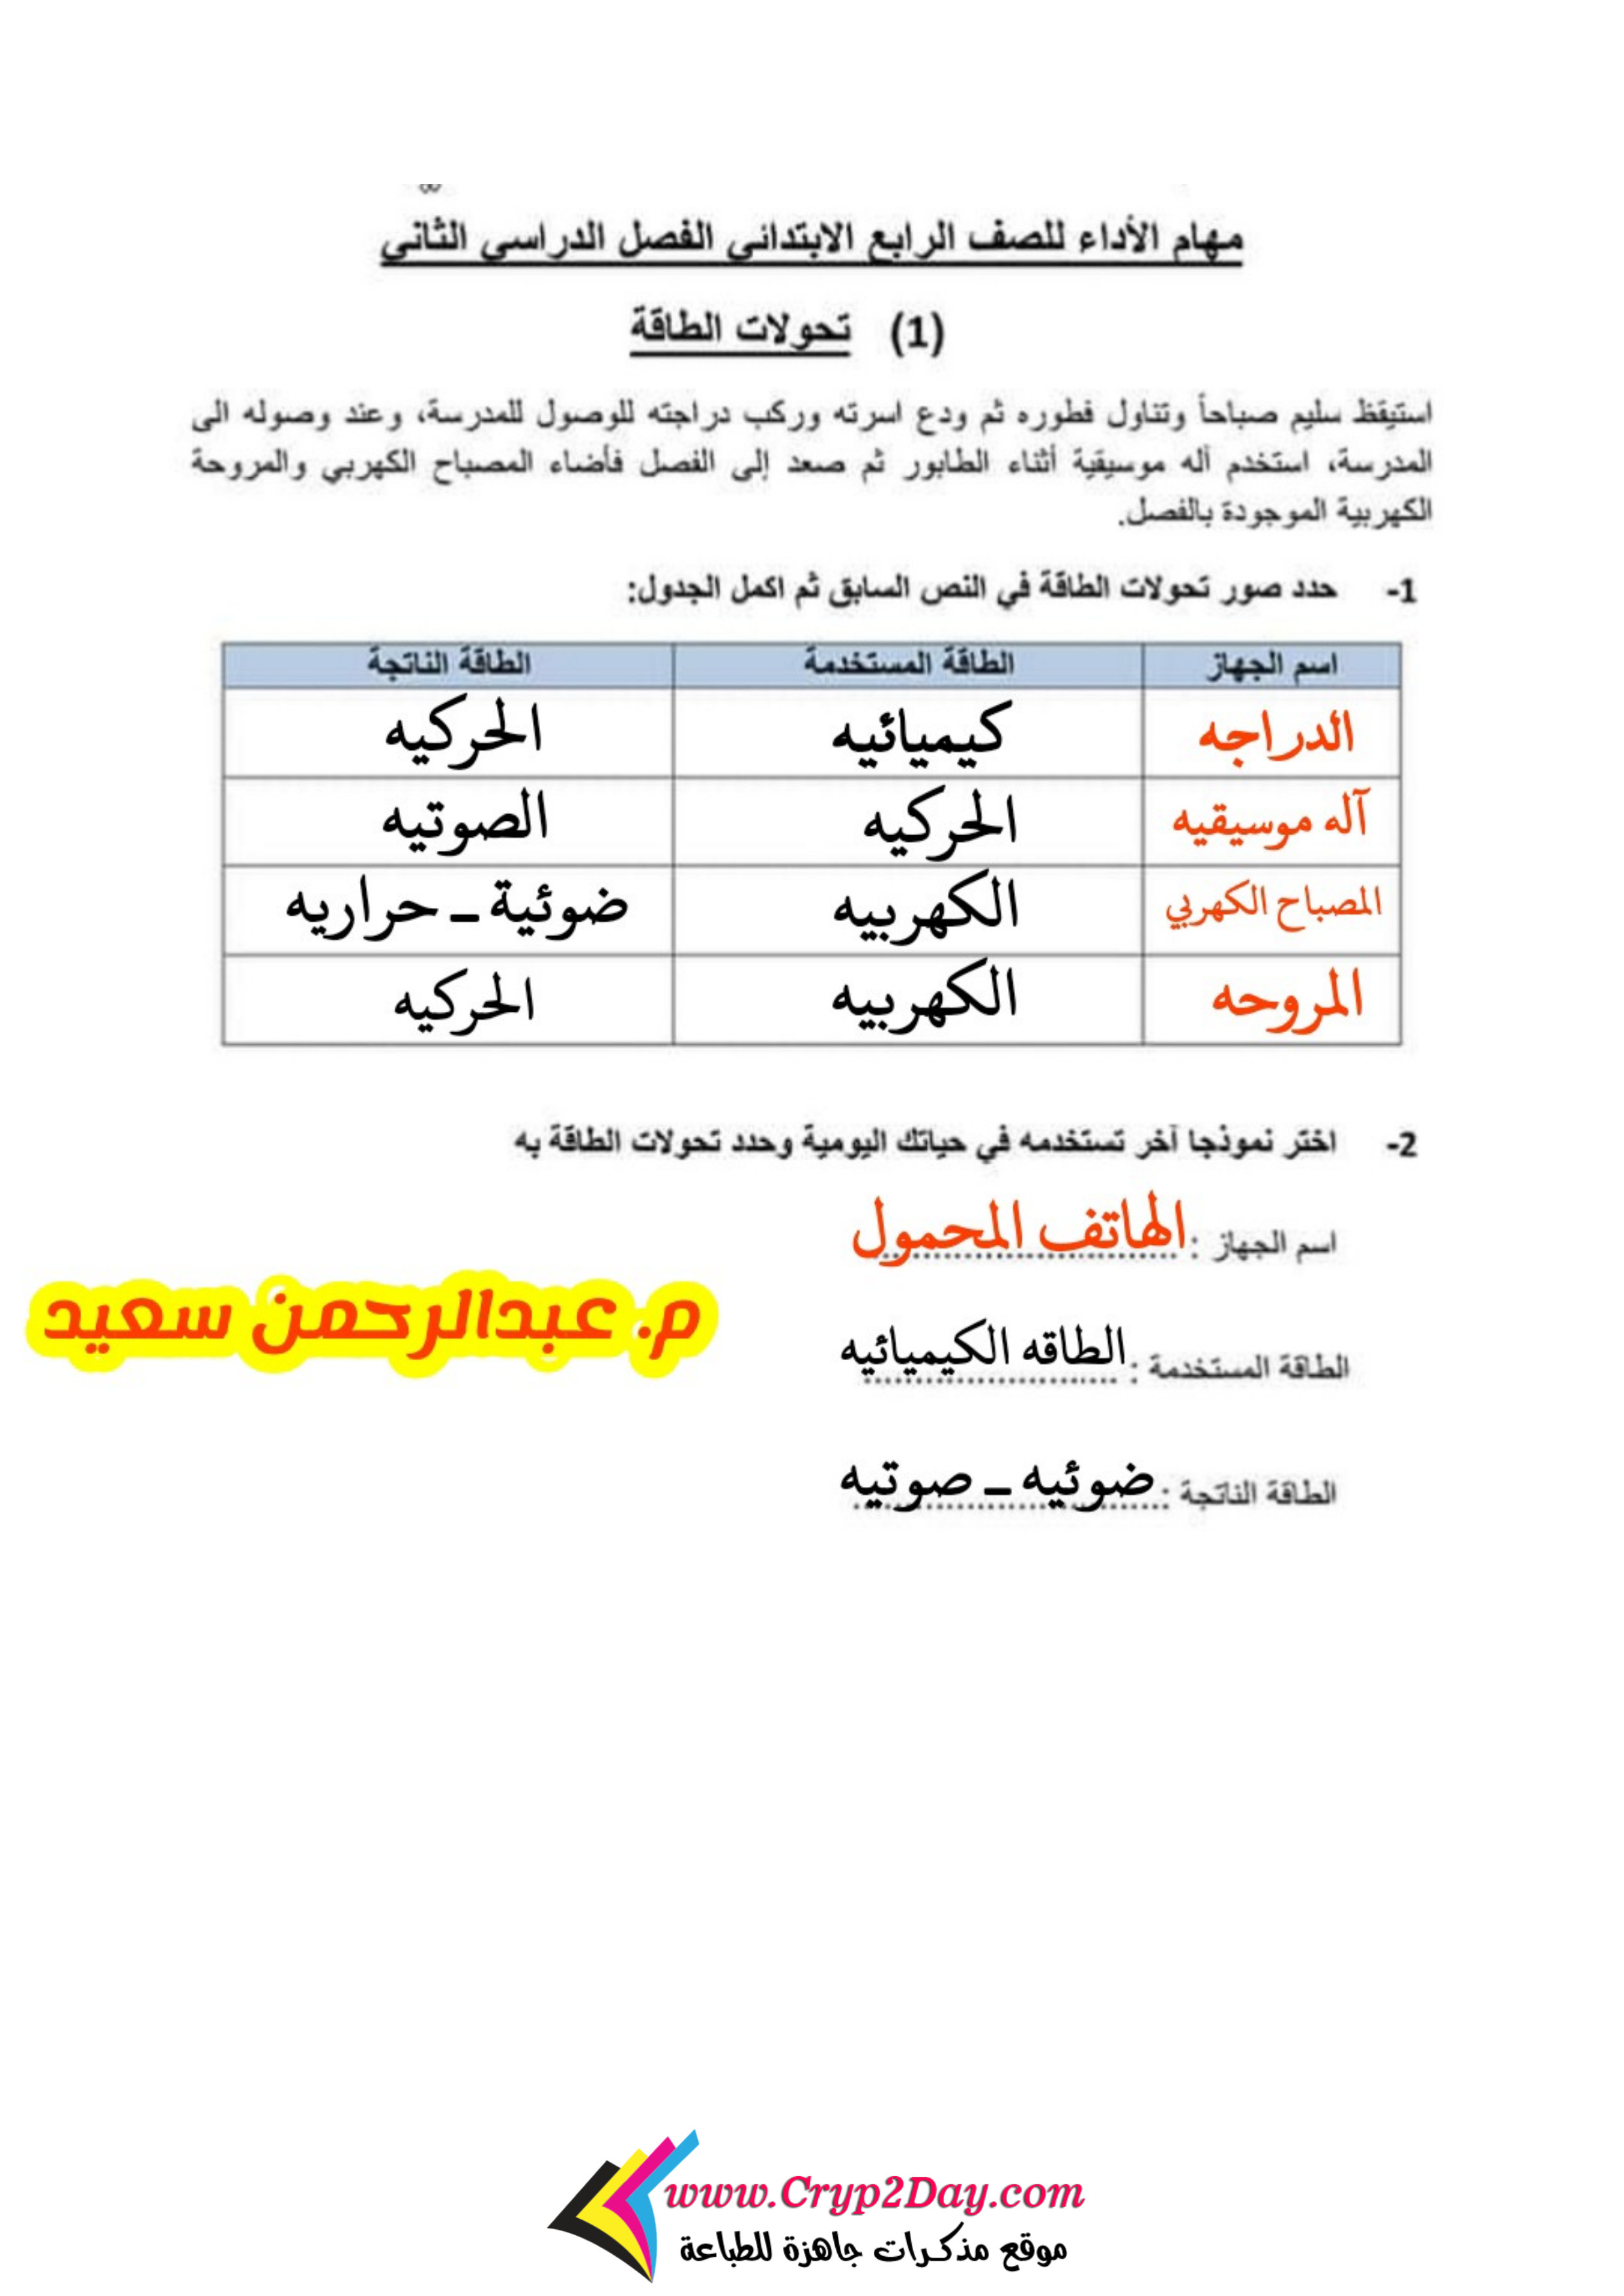 مهام الأداء للصف الرابع الابتدائي الفصل الدراسي الثاني
(1) تحولات الطاقة
استيقظ سليم صباحاً وتناول فطوره ثم ودع اسرته وركب دراجته للوصول للمدرسة، وعند وصوله الى
المدرسة، استخدم آله موسيقية أثناء الطابور ثم صعد إلى الفصل فأضاء المصباح الكهربي والمروحة
الكهربية الموجودة بالفصل.
1- حدد صور تحولات الطاقة في النص السابق ثم اكمل الجدول:
اسم الجهاز الطاقة المستخدمة الطاقة الناتجة
الدراجه كيميائيه الحركيه
آله موسيقيه الحركيه الصوتيه
المصباح الكهربي الكهربيه ضوئية - حراريه
المروحه الكهربيه الحركيه
2- اختر نموذجا آخر تستخدمه في حياتك اليومية وحدد تحولات الطاقة به
اسم الجهاز : الهاتف المحمول
م. عبدالرحمن سعيد
الطاقة المستخدمة : الطاقه الكيميائيه
الطاقة الناتجة : ضوئيه - صوتيه
www.Cryp2Day.com
موقع مذكرات جاهزة للطباعة